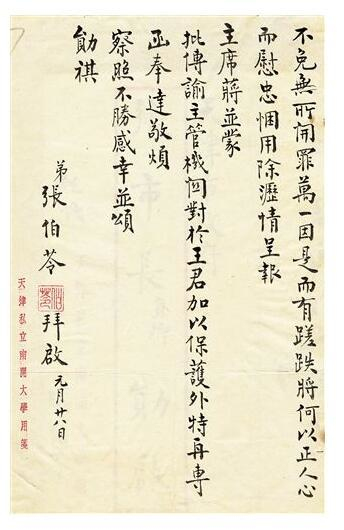 不免無所開罪萬一因是而有蹉跌將何以正人心
而慰忠悃用除瀝情呈報
主席蔣並蒙
批傳諭主管機關對於王君加以保護外特再專
函奉達敬煩
察照不勝感幸並頌
勛祺
弟張伯苓拜啟元月廿八日
天津私立南開大學用箋